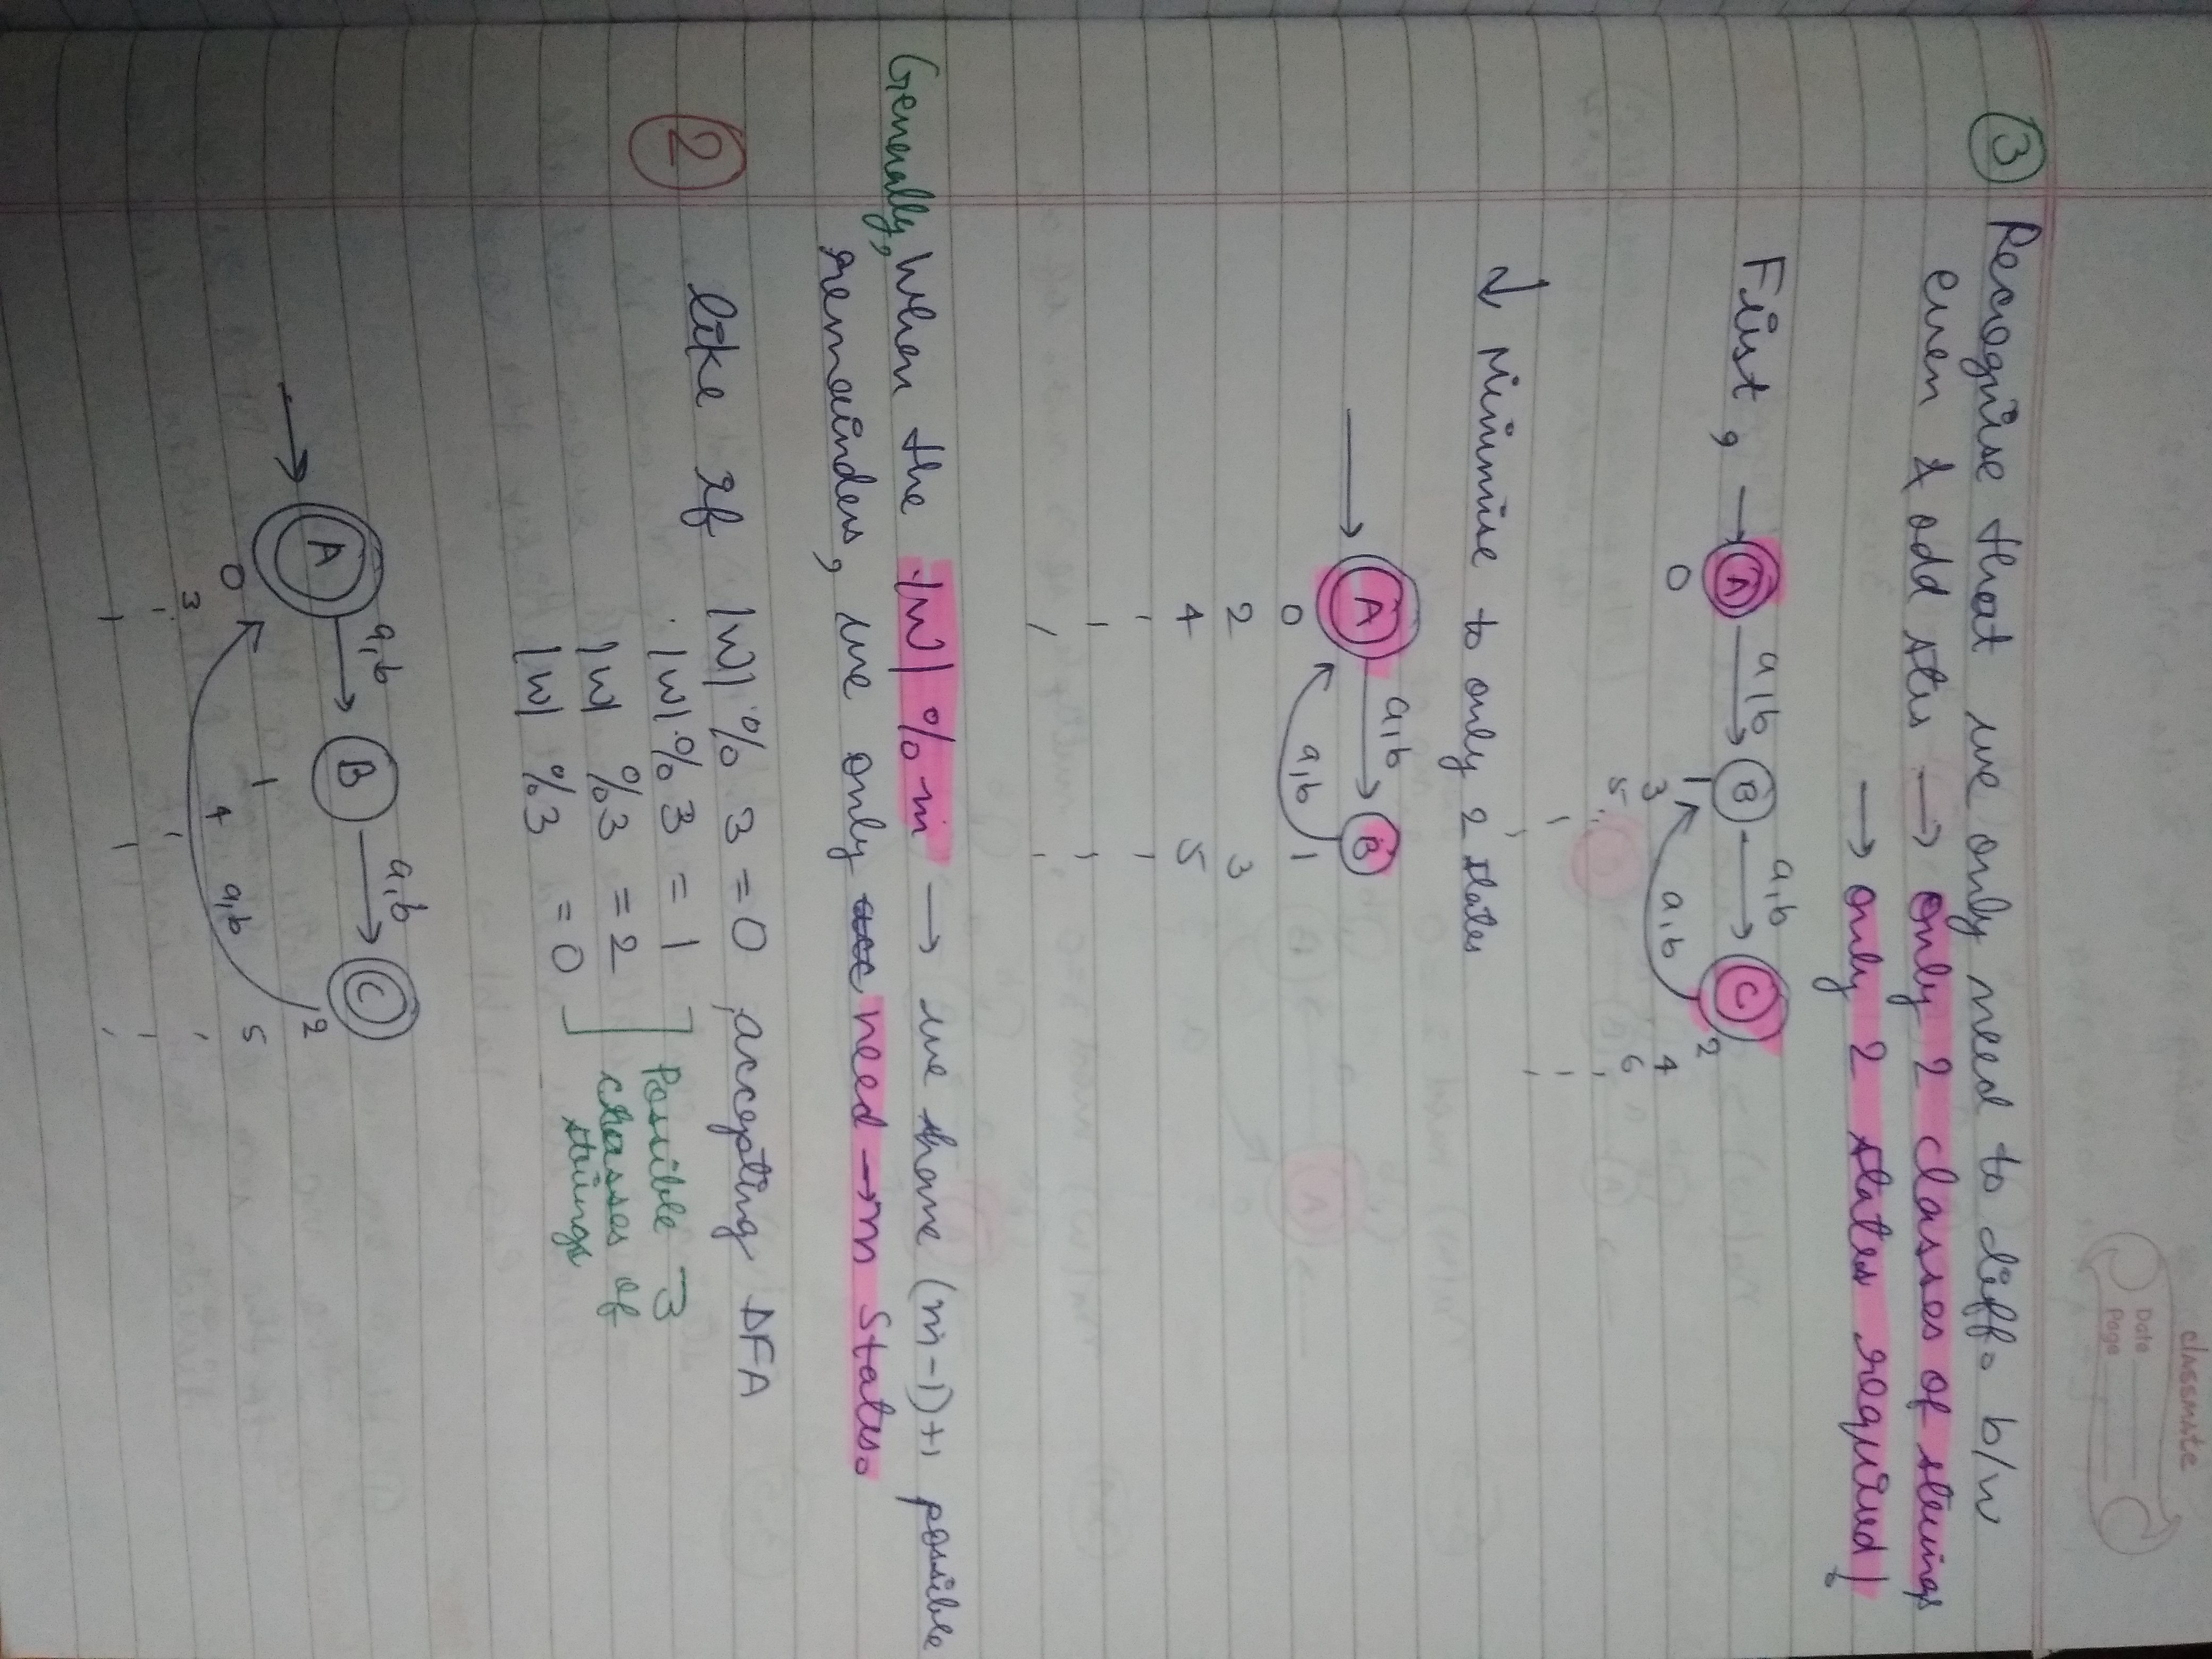 classmate
Date
Page
③ Recognise that we only need to diff. b/w
even & odd strs → only 2 classes of strings
→ only 2 states required!
First, → A a,b B a,b C
0 1 2
3 a,b 4
5 6
↓ Minimise to only 2 states
A a,b B
0 a,b 1
2 3
4 5
Generally, when the |W| % n → we have (n-1)+1 possible
remainders, we only need → n states.
② like if |W| % 3 = 0, accepting DFA
|W| % 3 = 1
|W| % 3 = 2
|W| % 3 = 0
Possible 3
classes of
strings
A a,b B a,b C
0 1 2
3 4 a,b 5